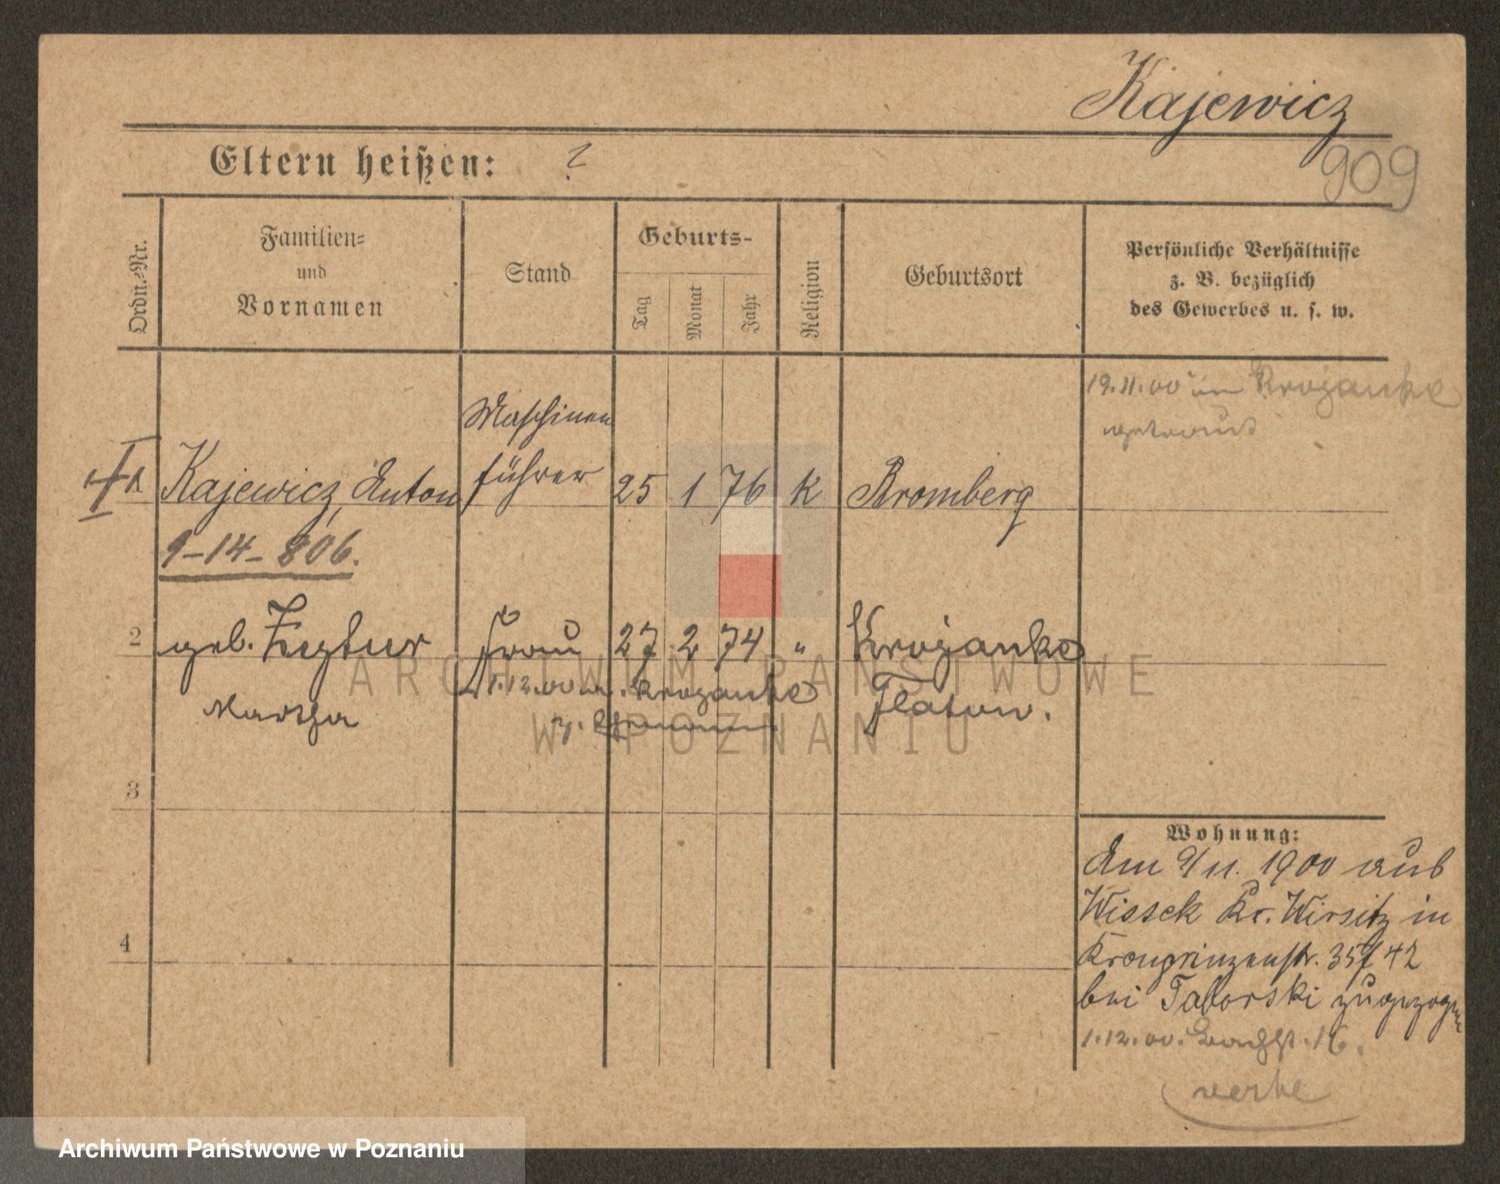 Kajewicz
909
Eltern heißen: ?
Ordn.-Nr.
Familien-
und
Vornamen
Stand
Geburts-
Tag
Monat
Jahr
Religion
Geburtsort
Persönliche Verhältnisse
z. B. bezüglich
des Gewerbes u. s. w.
19.11.00 in Krojanke
getraut
Maschinen
führer
1 Kajewicz, Anton 25 1 76 K Bromberg
9-14-806.
2 geb. Frau 27 2 74 " Krojanke
1.12.00 a. Krojanke
Martha
Flatow.
3
4
Wohnung:
Am 9/11. 1900 aus
Wissek Kr. Wirsitz in
Kronprinzenstr. 35/42
bei Taborski zugezogen
1.12.00. 16.
verhe
ARCHIWUM PAŃSTWOWE
W POZNANIU
Archiwum Państwowe w Poznaniu